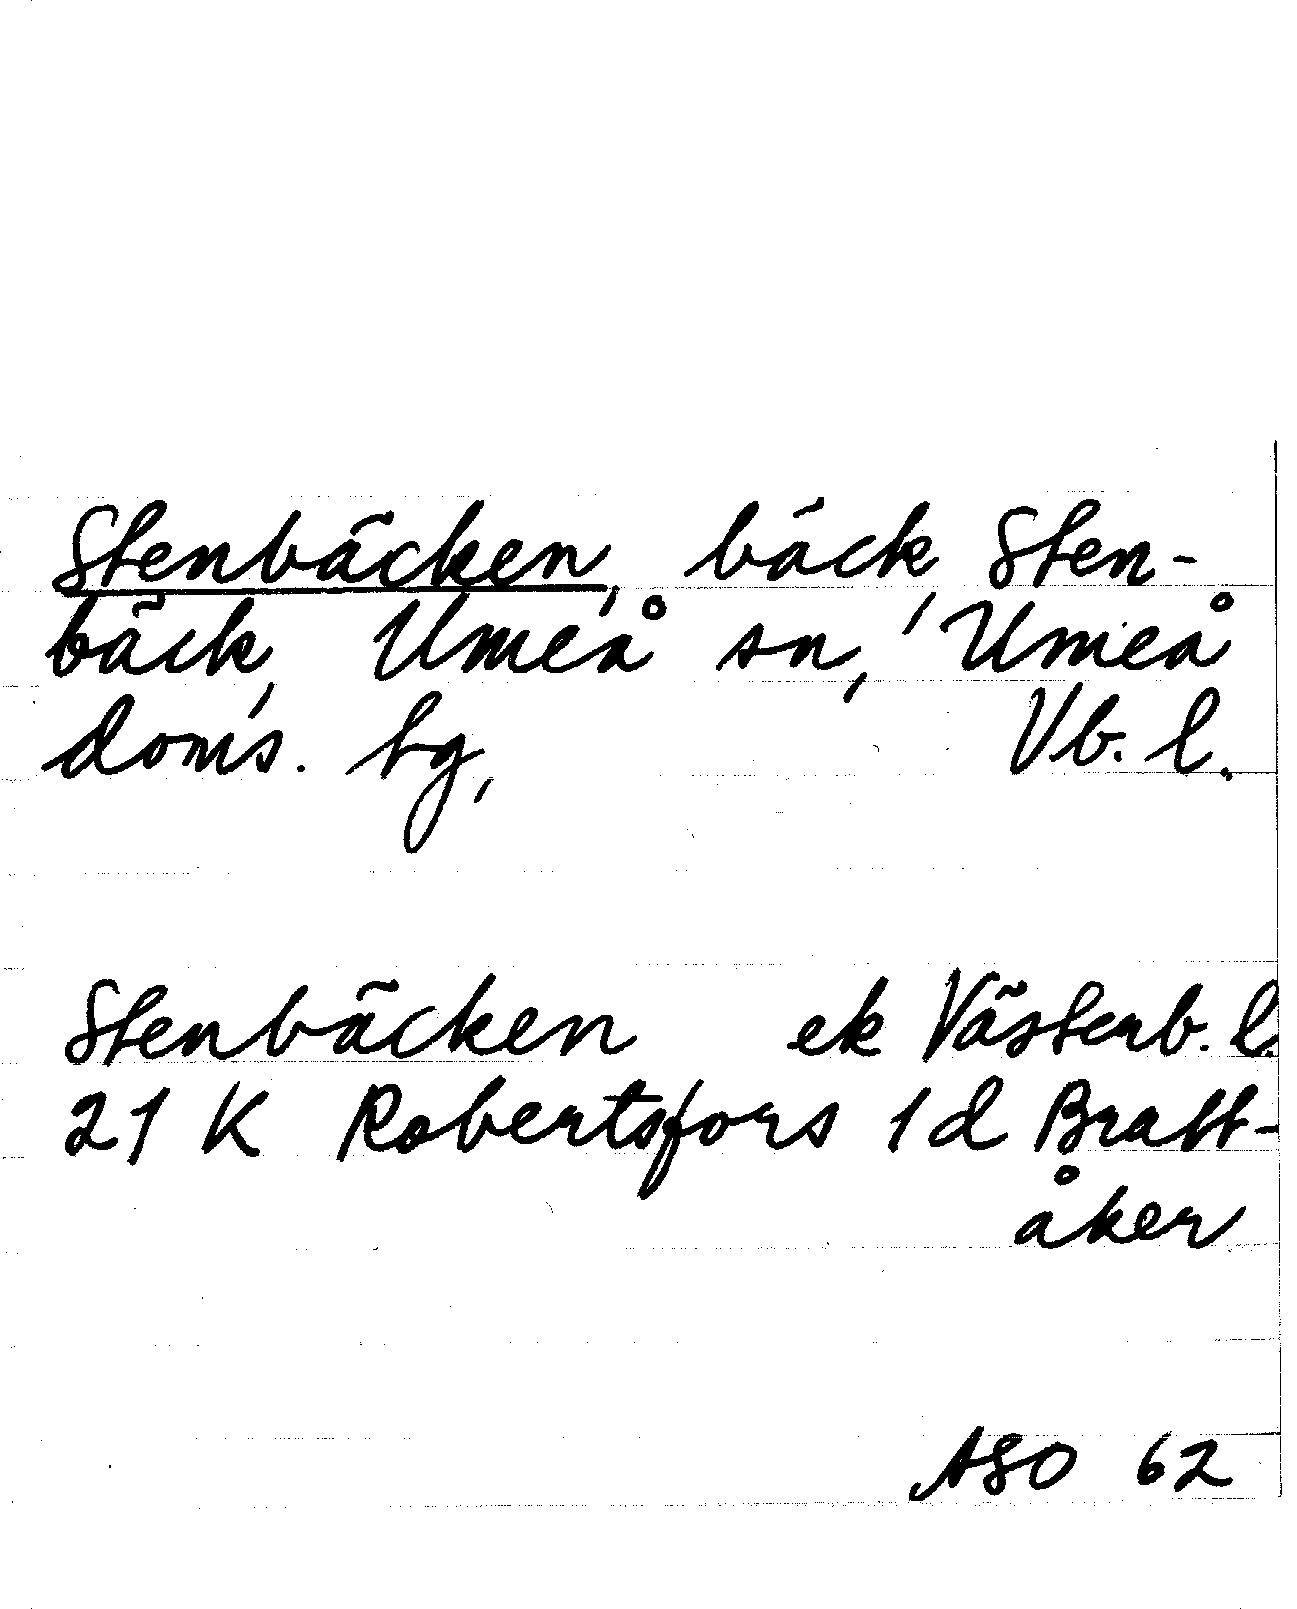 Stenbäcken, bäck, Sten-
bäck, Umeå sn, Umeå
doms. tg, Vb. l.
Stenbäcken ek Västerb. l.
21 K Robertsfors 1d Bratt-
åker
ASO 62